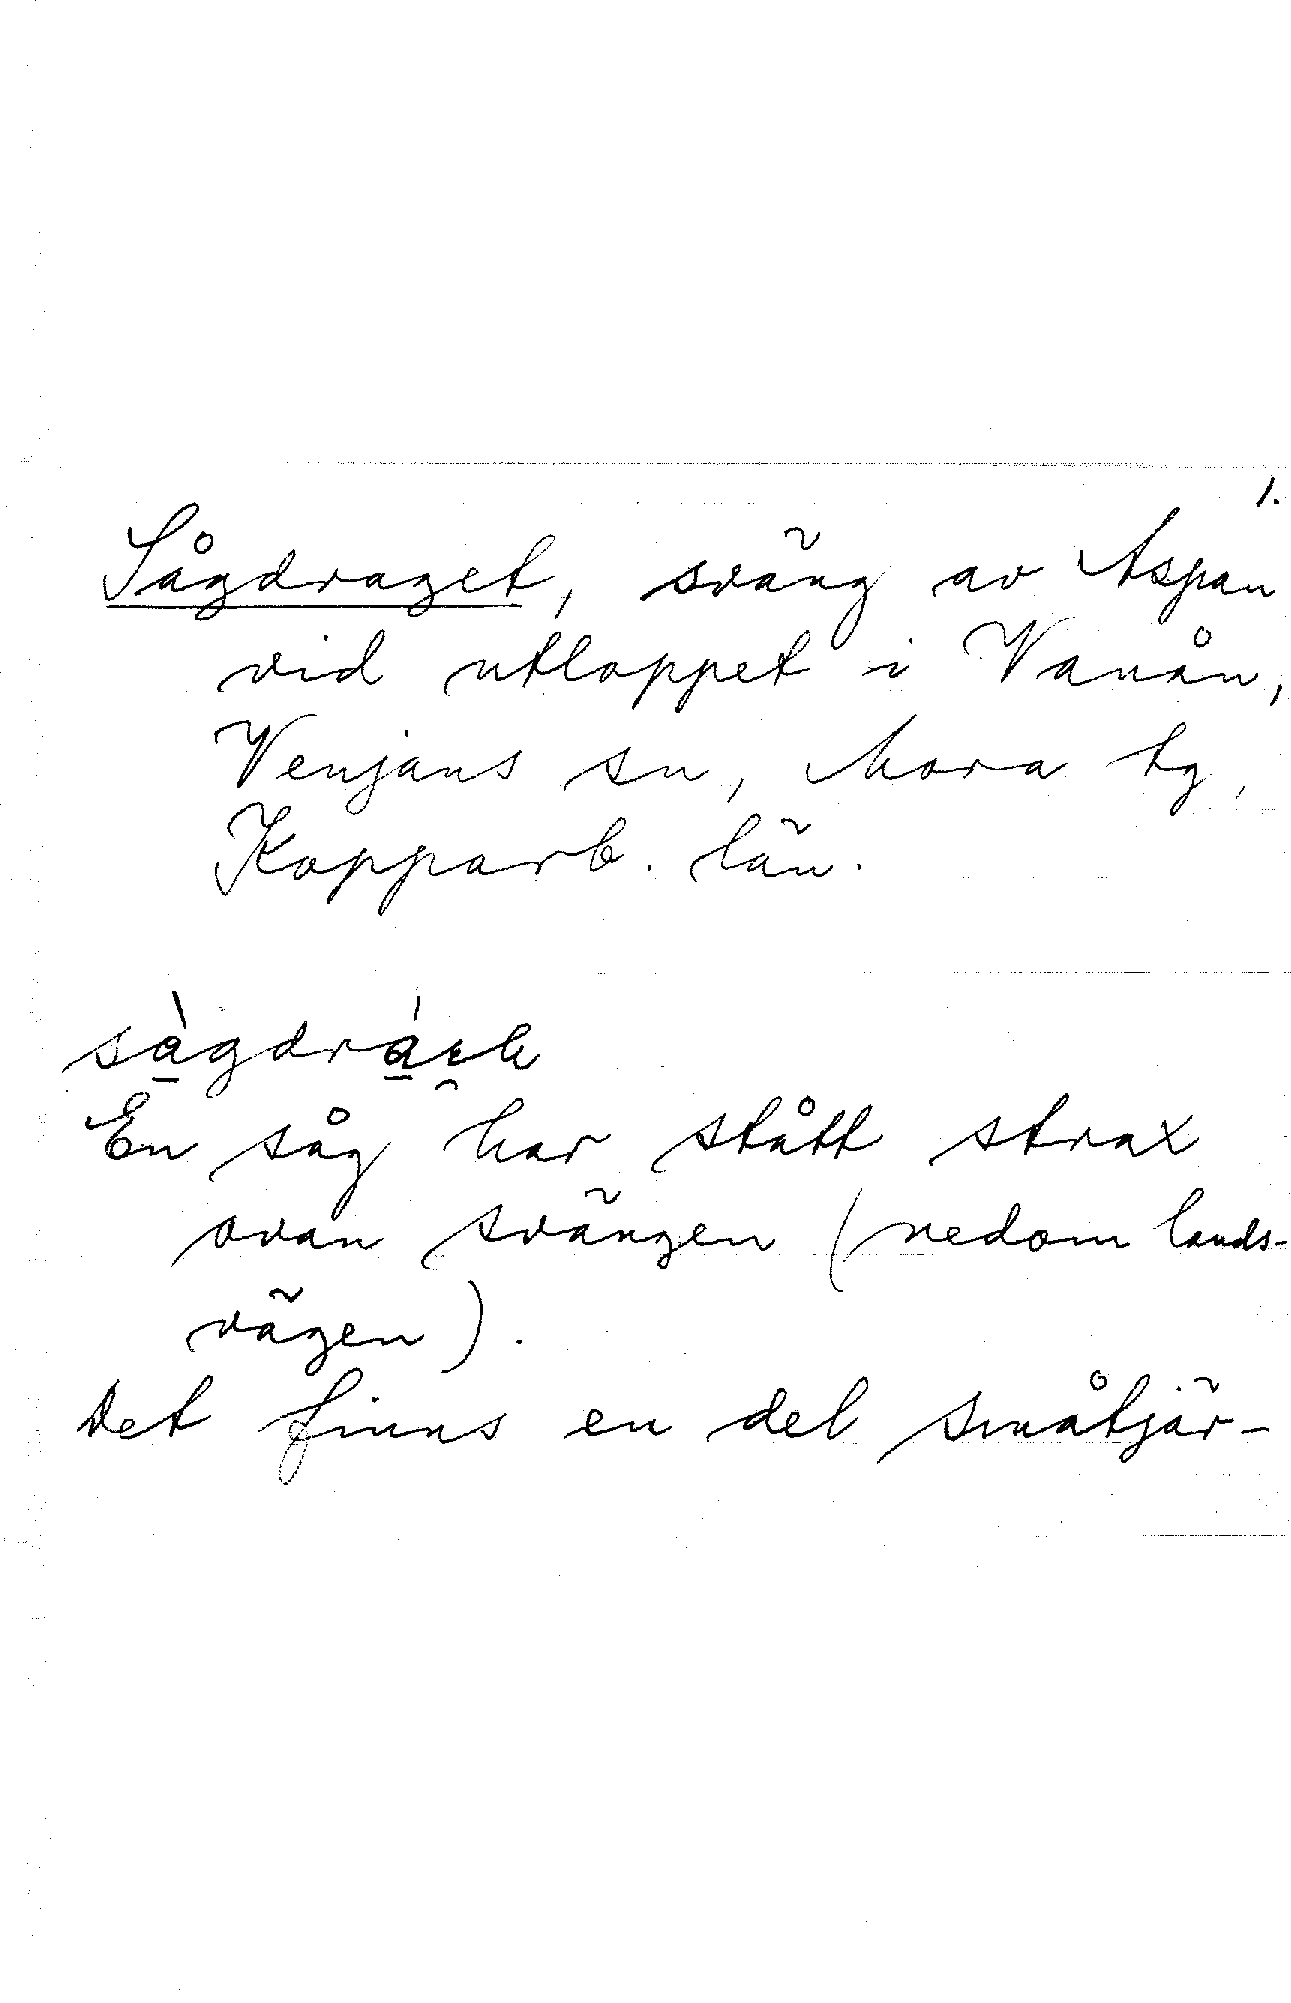 1.
Sågdraget, sväng av Aspan
vid utloppet i Vanån,
Venjans sn, Mora tg,
Kopparb. län.
En såg har stått strax
ovan svängen (nedom lands-
vägen).
Det finns en del småtjär-